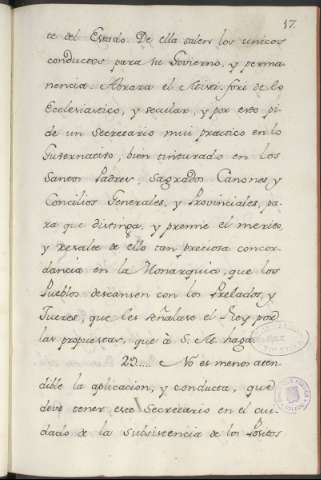 17
te del Estado. De ella salen los unicos
conductos para su Govierno, y perma-
nencia. Abraza el Mixti fori de lo
Eclesiastico, y secular, y por esto pi-
de un Secretario mui practico en lo
Gubernativo, bien tinturado en los
Santos Padres, Sagrados Canones, y
Concilios Generales, y Provinciales, pa-
ra que distinga, y premie el merito,
y resulte de ello tan preciosa concor-
dancia en la Monarquia, que los
Pueblos descansen con los Prelados, y
Jueces, que les señalare el Rey por
las propuestas, que á S. M. haga.
23.... No es menos aten-
dible la aplicacion, y conducta, que
deve tener este Secretario en el cui-
dado de la Subsistencia de los Positos